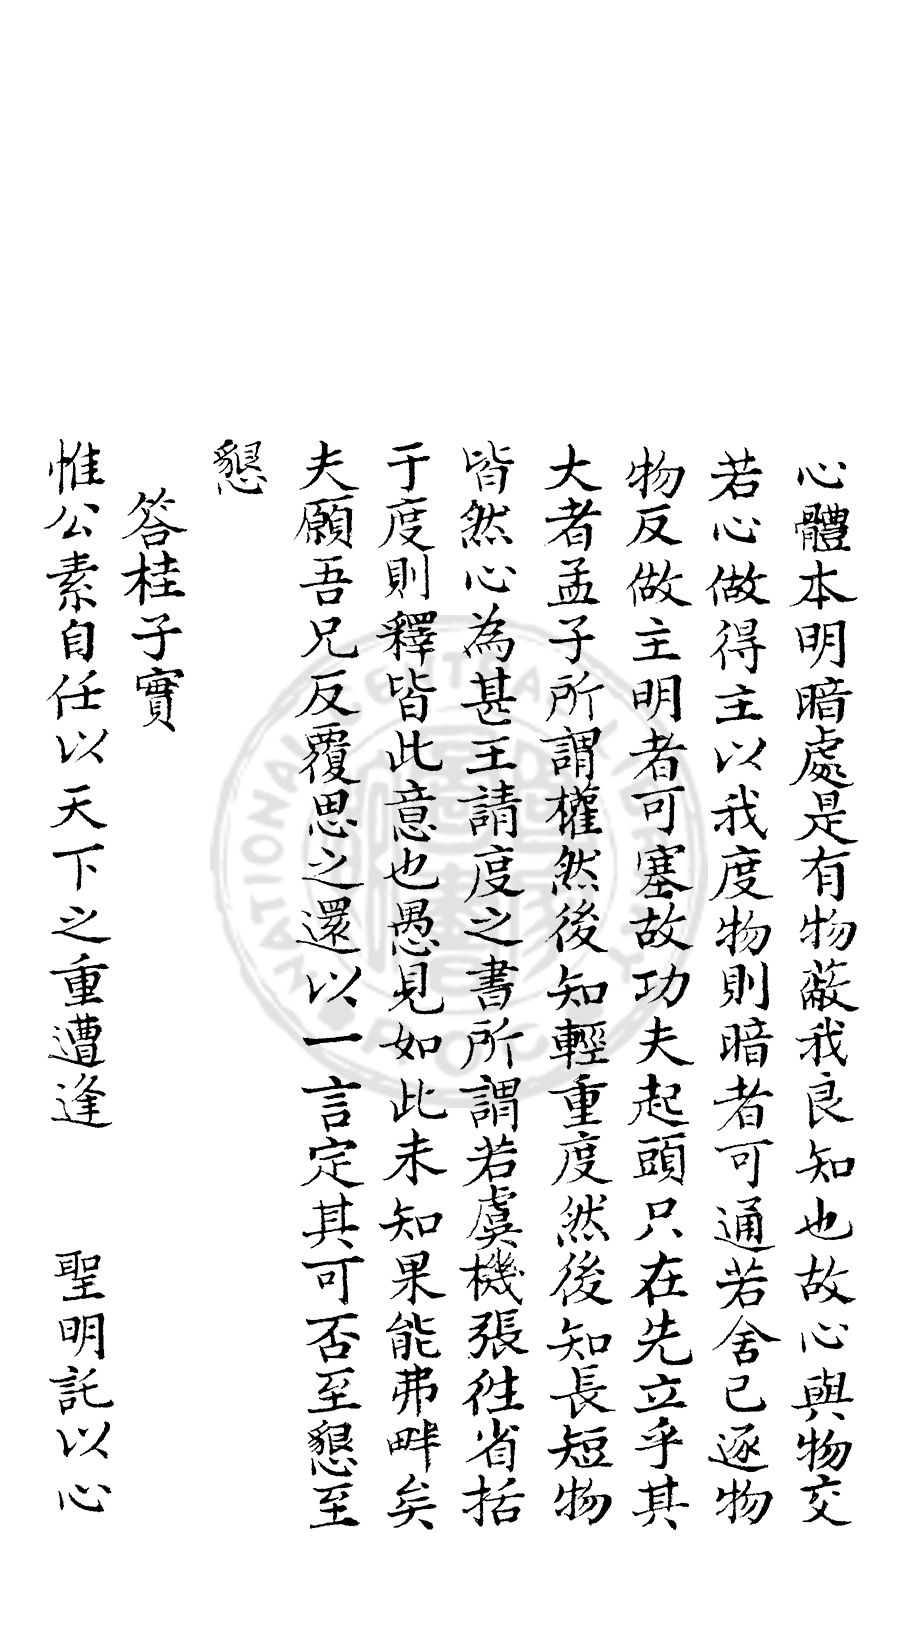 心體本明暗處是有物蔽我良知也故心與物交
若心做得主以我度物則暗者可通若舍己逐物
物反做主明者可塞故功夫起頭只在先立乎其
大者孟子所謂權然後知輕重度然後知長短物
皆然心為甚王請度之書所謂若虞機張徃省括
于度則釋皆此意也愚見如此未知果能弗畔矣
夫願吾兄反覆思之還以一言定其可否至懇至
懇
答桂子實
惟公素自任以天下之重遭逢　聖明託以心
NATIONAL CENTRAL LIBRARY
R.O.C